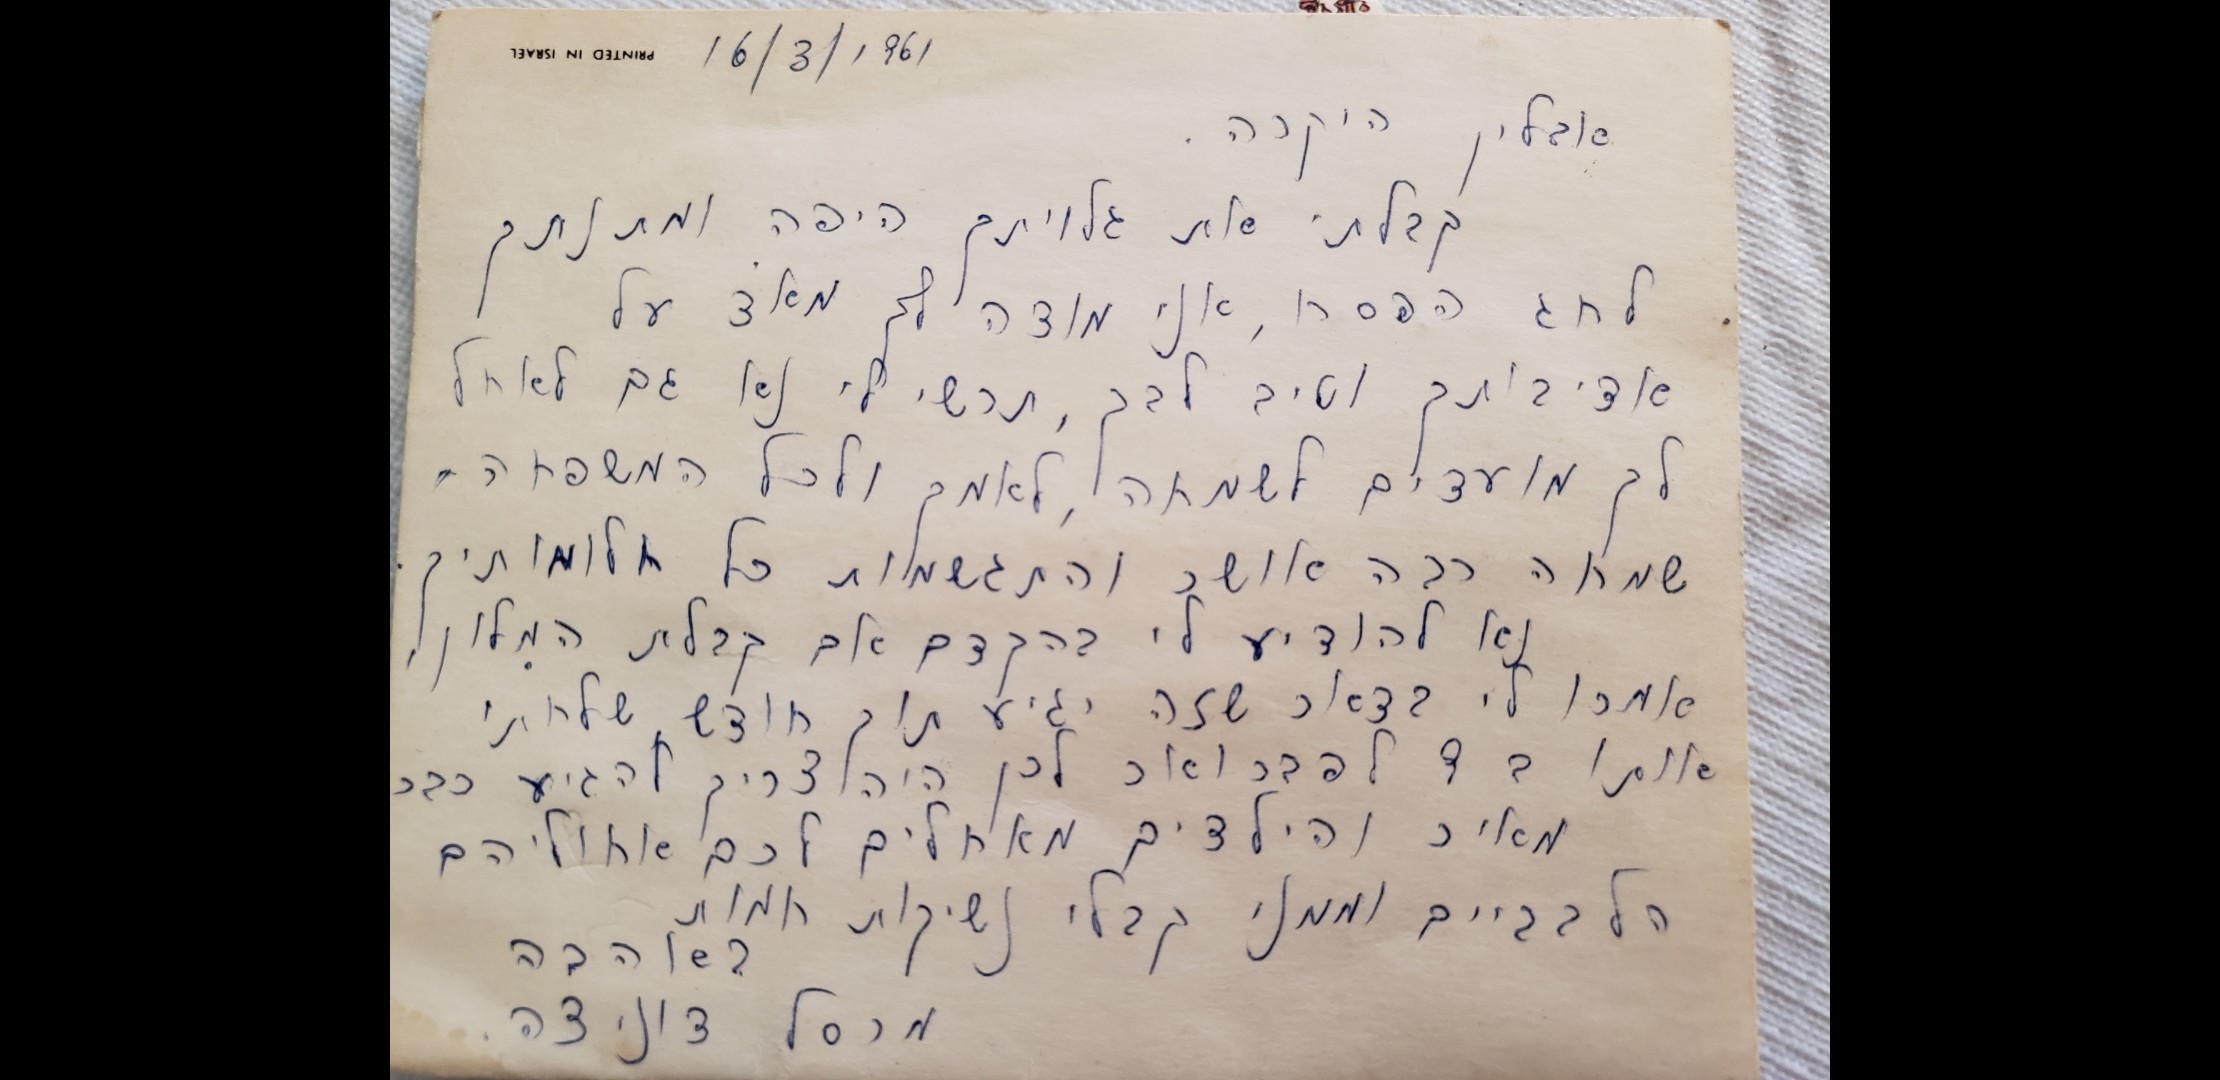 PRINTED IN ISRAEL 16/3/1961
אבלין היקרה.
קבלתי את גלויתך היפה ומתנתך
לחג הפסח, אני מודה לך מאד על
אדיבותך וטיב לבך, תרשי לי נא גם לאחל
לך מועדים לשמחה, לאמך ולכל המשפחה -
שמחה רבה אושר והתגשמות כל חלומותיך.
נא להודיע לי בהקדם אם קבלת המלון,
אמרו לי בדאר שזה יגיע תוך חודש, שלחתי
אותו ב 9 לפברואר לכן היה צריך להגיע כבר
מאיר והילדים מאחלים לכם אחוליהם
הלבביים וממני קבלי נשיקות חמות
באהבה
מרסל דוניצה.